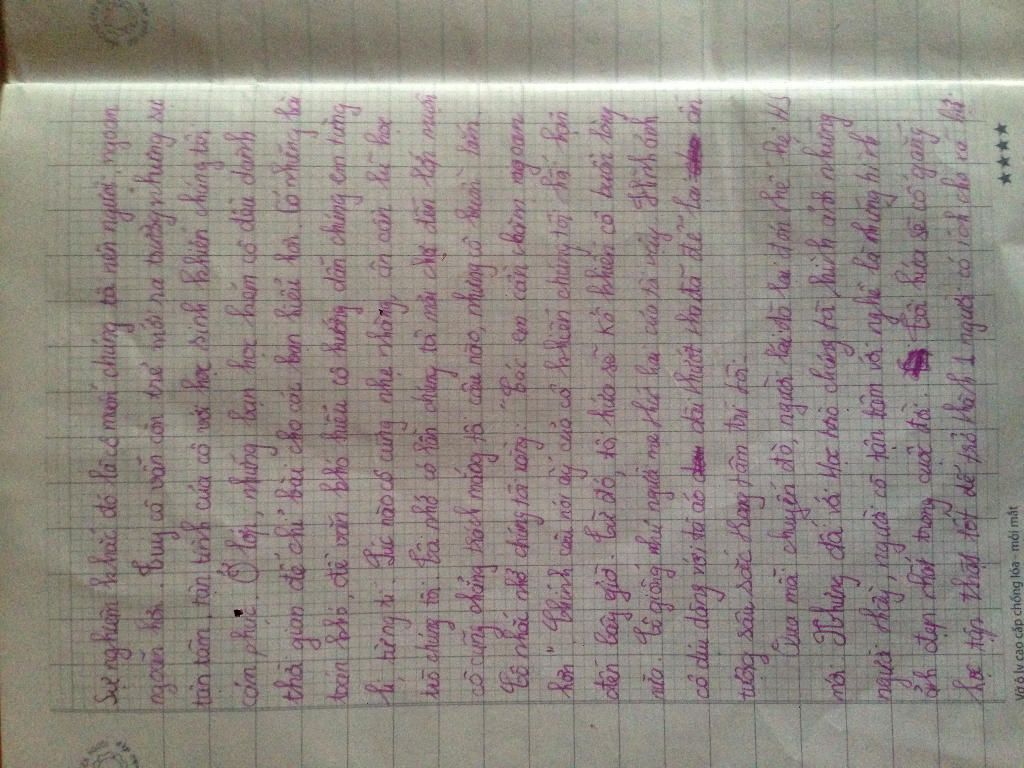 sự nghiêm khắc đó là cô muốn chúng tôi nên người, ngoan
ngoãn hơn. Tuy cô vẫn còn trẻ mới ra trường nhưng sự
tận tâm, tận tình của cô với học sinh khiến chúng tôi
cảm phục. Ở lớp, những bạn học kém cô đều dành
thời gian để chỉ bài cho các bạn hiểu hơn. Có những bài
toán khó, đề văn khó hiểu cô hướng dẫn chúng em từng
li từng tí. Lúc nào cô cũng nhẹ nhàng, ân cần kể học
trò chúng tôi. Tôi nhớ có lần chúng tôi mải chơi đến lớp muộn
cô cũng chẳng trách mắng tôi câu nào, nhưng cô buồn lắm.
Cô nhắc nhở chúng tôi rằng: "Các em cần chăm ngoan
hơn". Chính câu nói ấy của cô khiến chúng tôi hối hận
đến bây giờ. Từ đó, tôi hứa sẽ không khiến cô buồn lòng
nữa. Cô giống như người mẹ thứ hai của tôi vậy. Hình ảnh
cô dịu dàng với tà áo dài thướt tha đã để lại ấn
tượng sâu sắc trong tâm trí tôi.
Qua mỗi chuyến đò, người lái đò lại đón thế hệ HS
mới. Nhưng đối với học trò chúng tôi hình ảnh những
người thầy, người cô tận tâm với nghề là những hình
ảnh đẹp nhất trong cuộc đời. Tôi hứa sẽ cố gắng
học tập thật tốt để trở thành 1 người có ích cho xã hội.
Vở ô ly cao cấp chống lóa - mỏi mắt